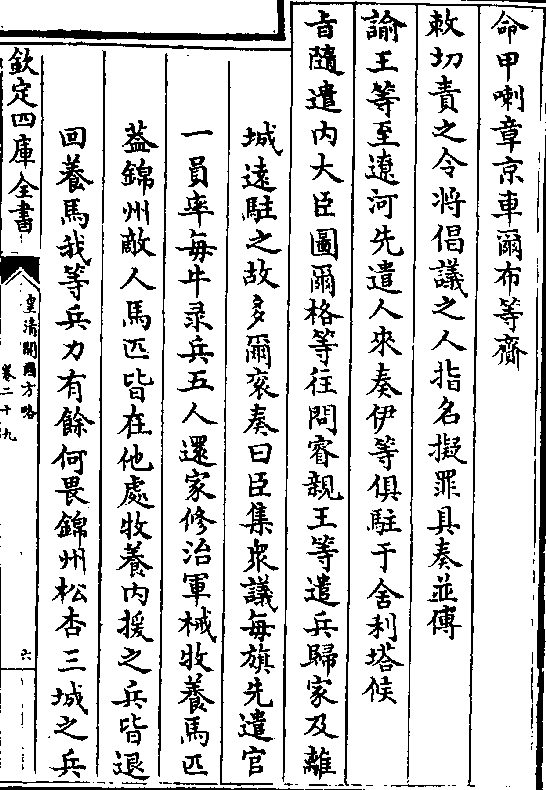 命甲喇章京車爾布等齎
敕切責之令將倡議之人指名擬罪具奏並傳
諭王等至遼河先遣人來奏伊等俱駐于舍利塔候
旨隨遣内大臣圖爾格等往問睿親王等遣兵歸家及離
城遠駐之故多爾衮奏曰臣集衆議每旗先遣官
一員率每牛录兵五人還家修治軍械牧養馬匹
蓋錦州敵人馬匹皆在他處牧養内援之兵皆退
回養馬我等兵力有餘何畏錦州松杏三城之兵
欽定四庫全書
皇清開國方略
卷二十九
六